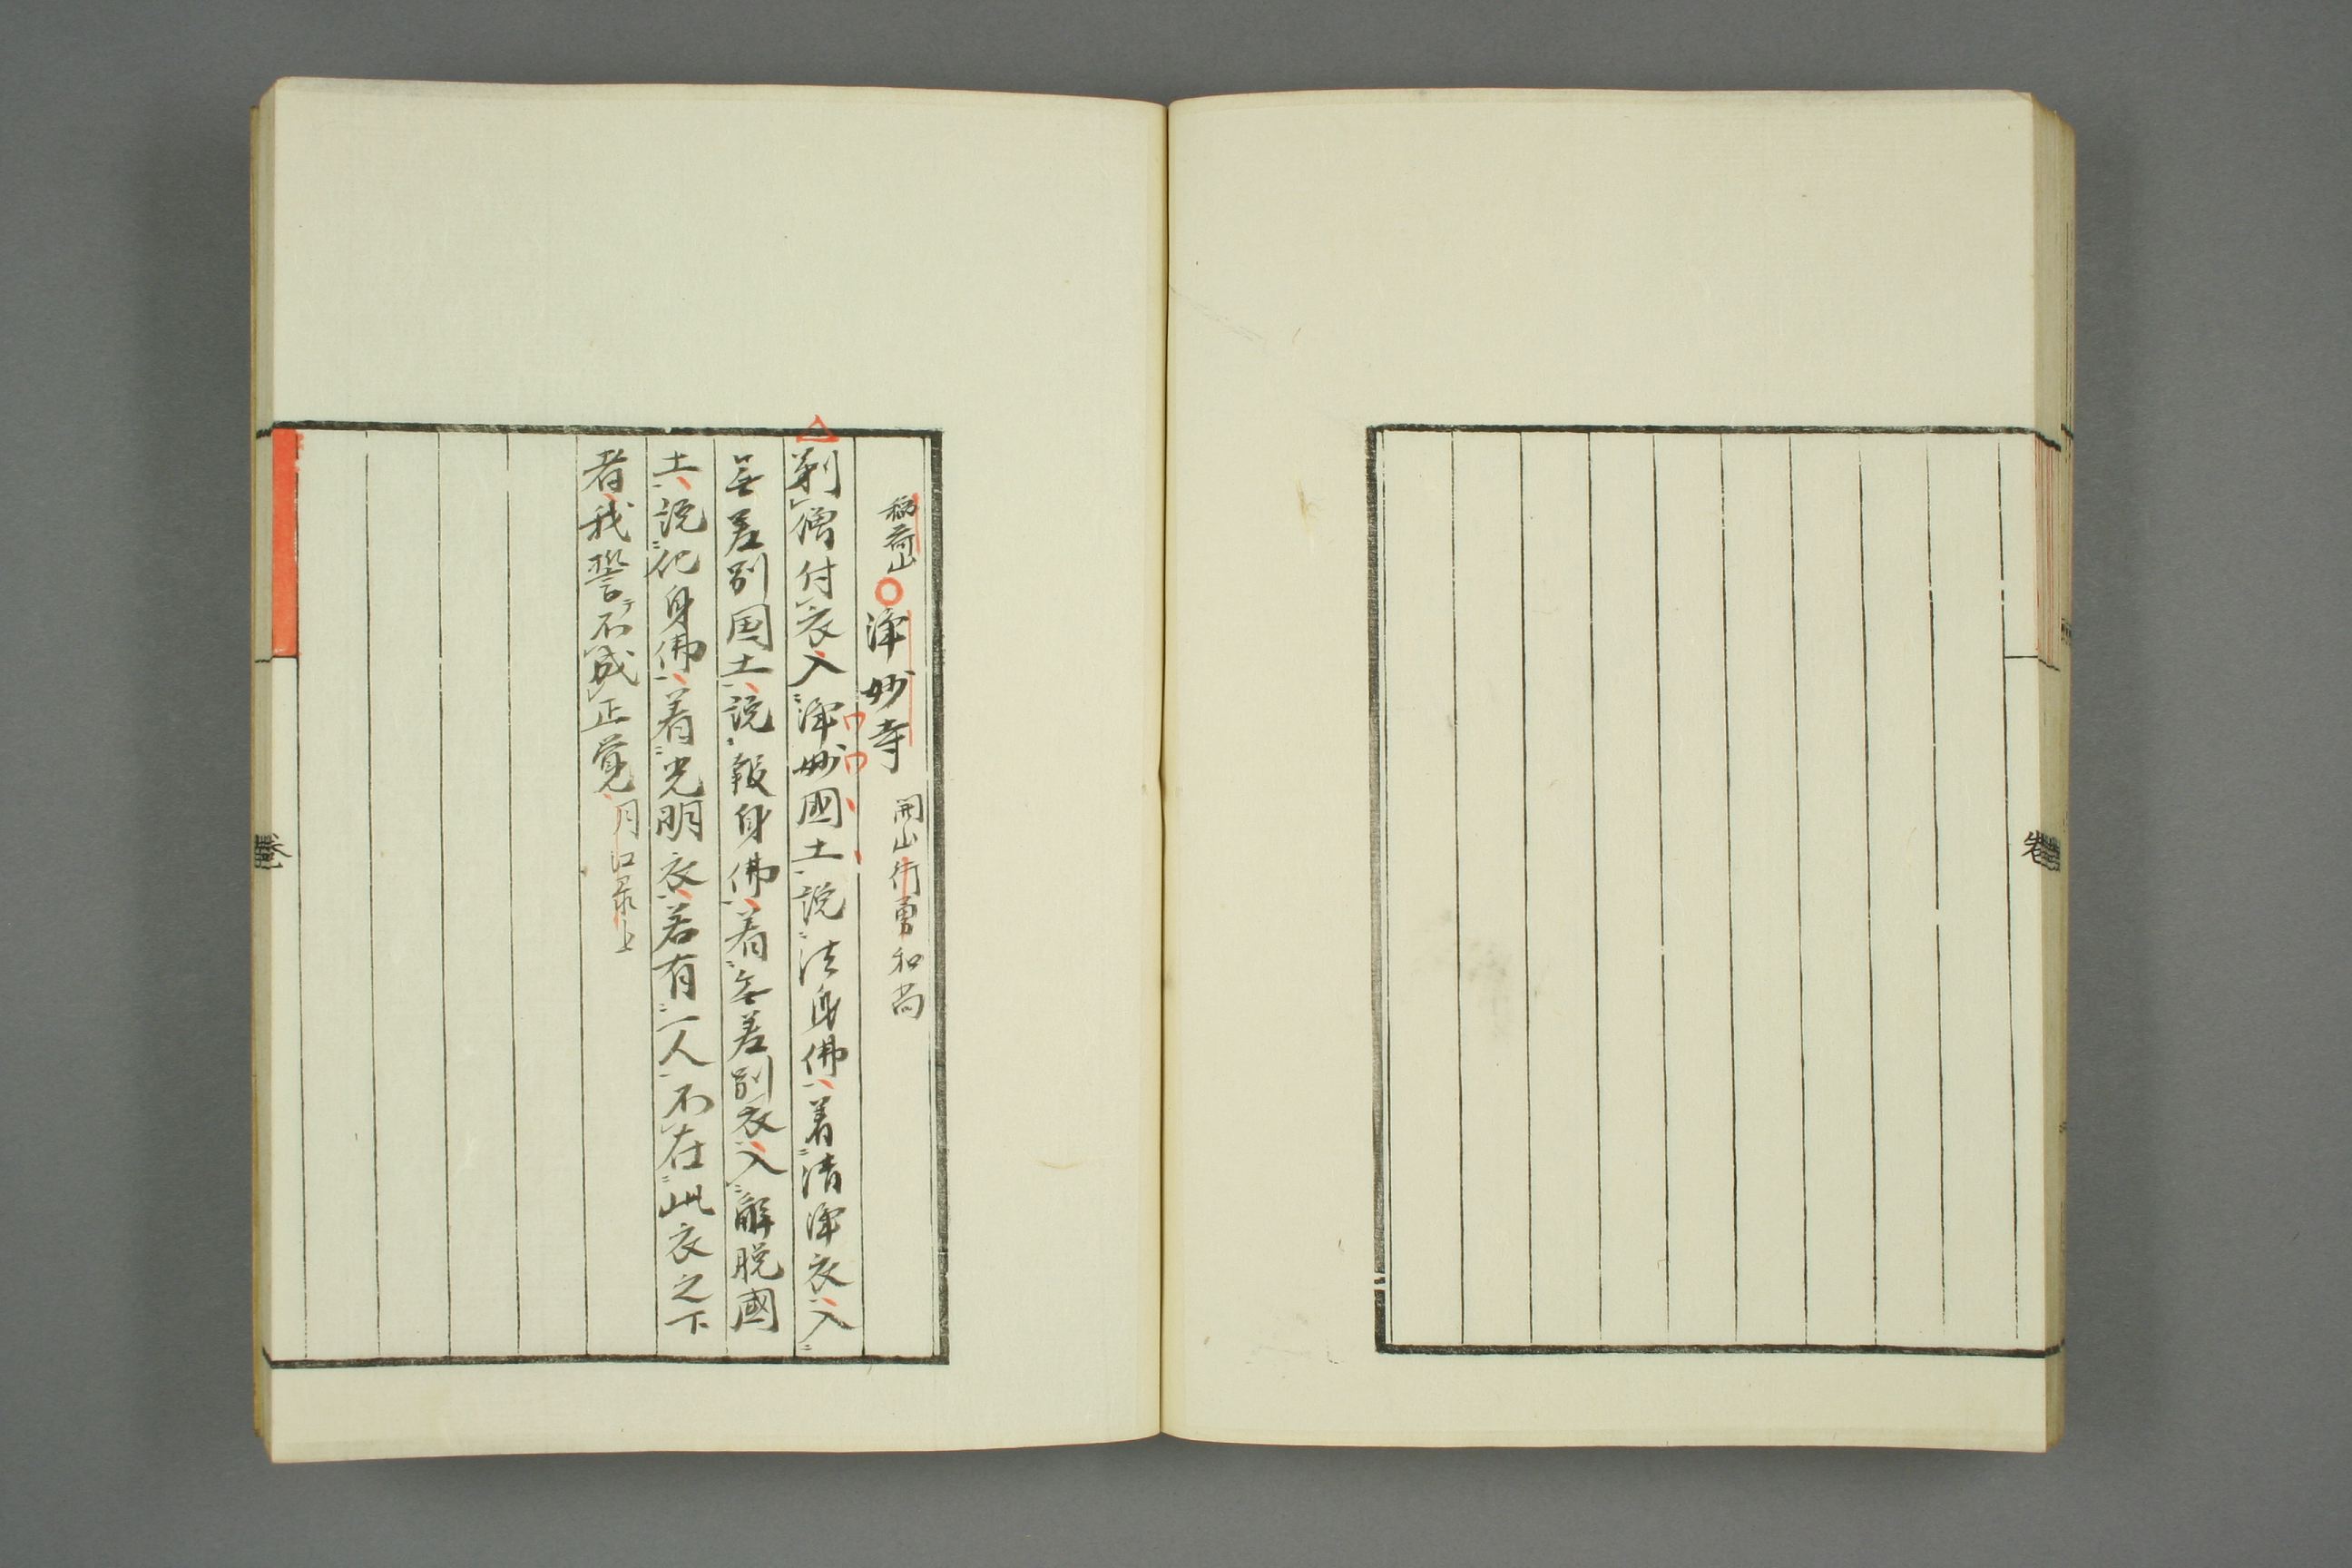 卷
稲荷山○浄妙寺 開山行勇和尚
剃僧付衣入浄妙國土説法身佛着清浄衣入
無差別国土説報身佛着無差別衣入解脱國
土説化身佛着光明衣若有一人不在此衣之下
者我誓不成正覚 月江录上
卷